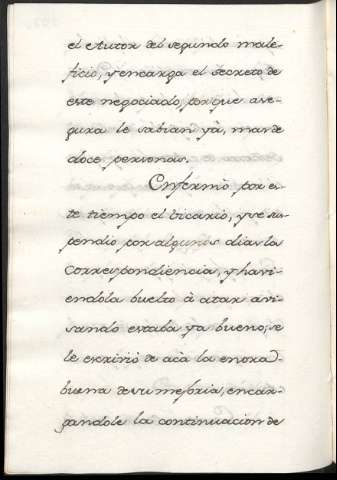 el Autor del segundo male-
ficio, y encarga el secreto de
este negociado, por que ase-
gura le sabian yà, mas de
doce personas.
Enfermò por es-
te tiempo el vicario, y se sus-
pendio por algunos dias la
Correspondiencia, y havi-
endola buelto â atar avi-
sando estaba ya bueno, se
le escriviò de acà la enora-
buena de su mejoria, encar-
gandole la continuacion de